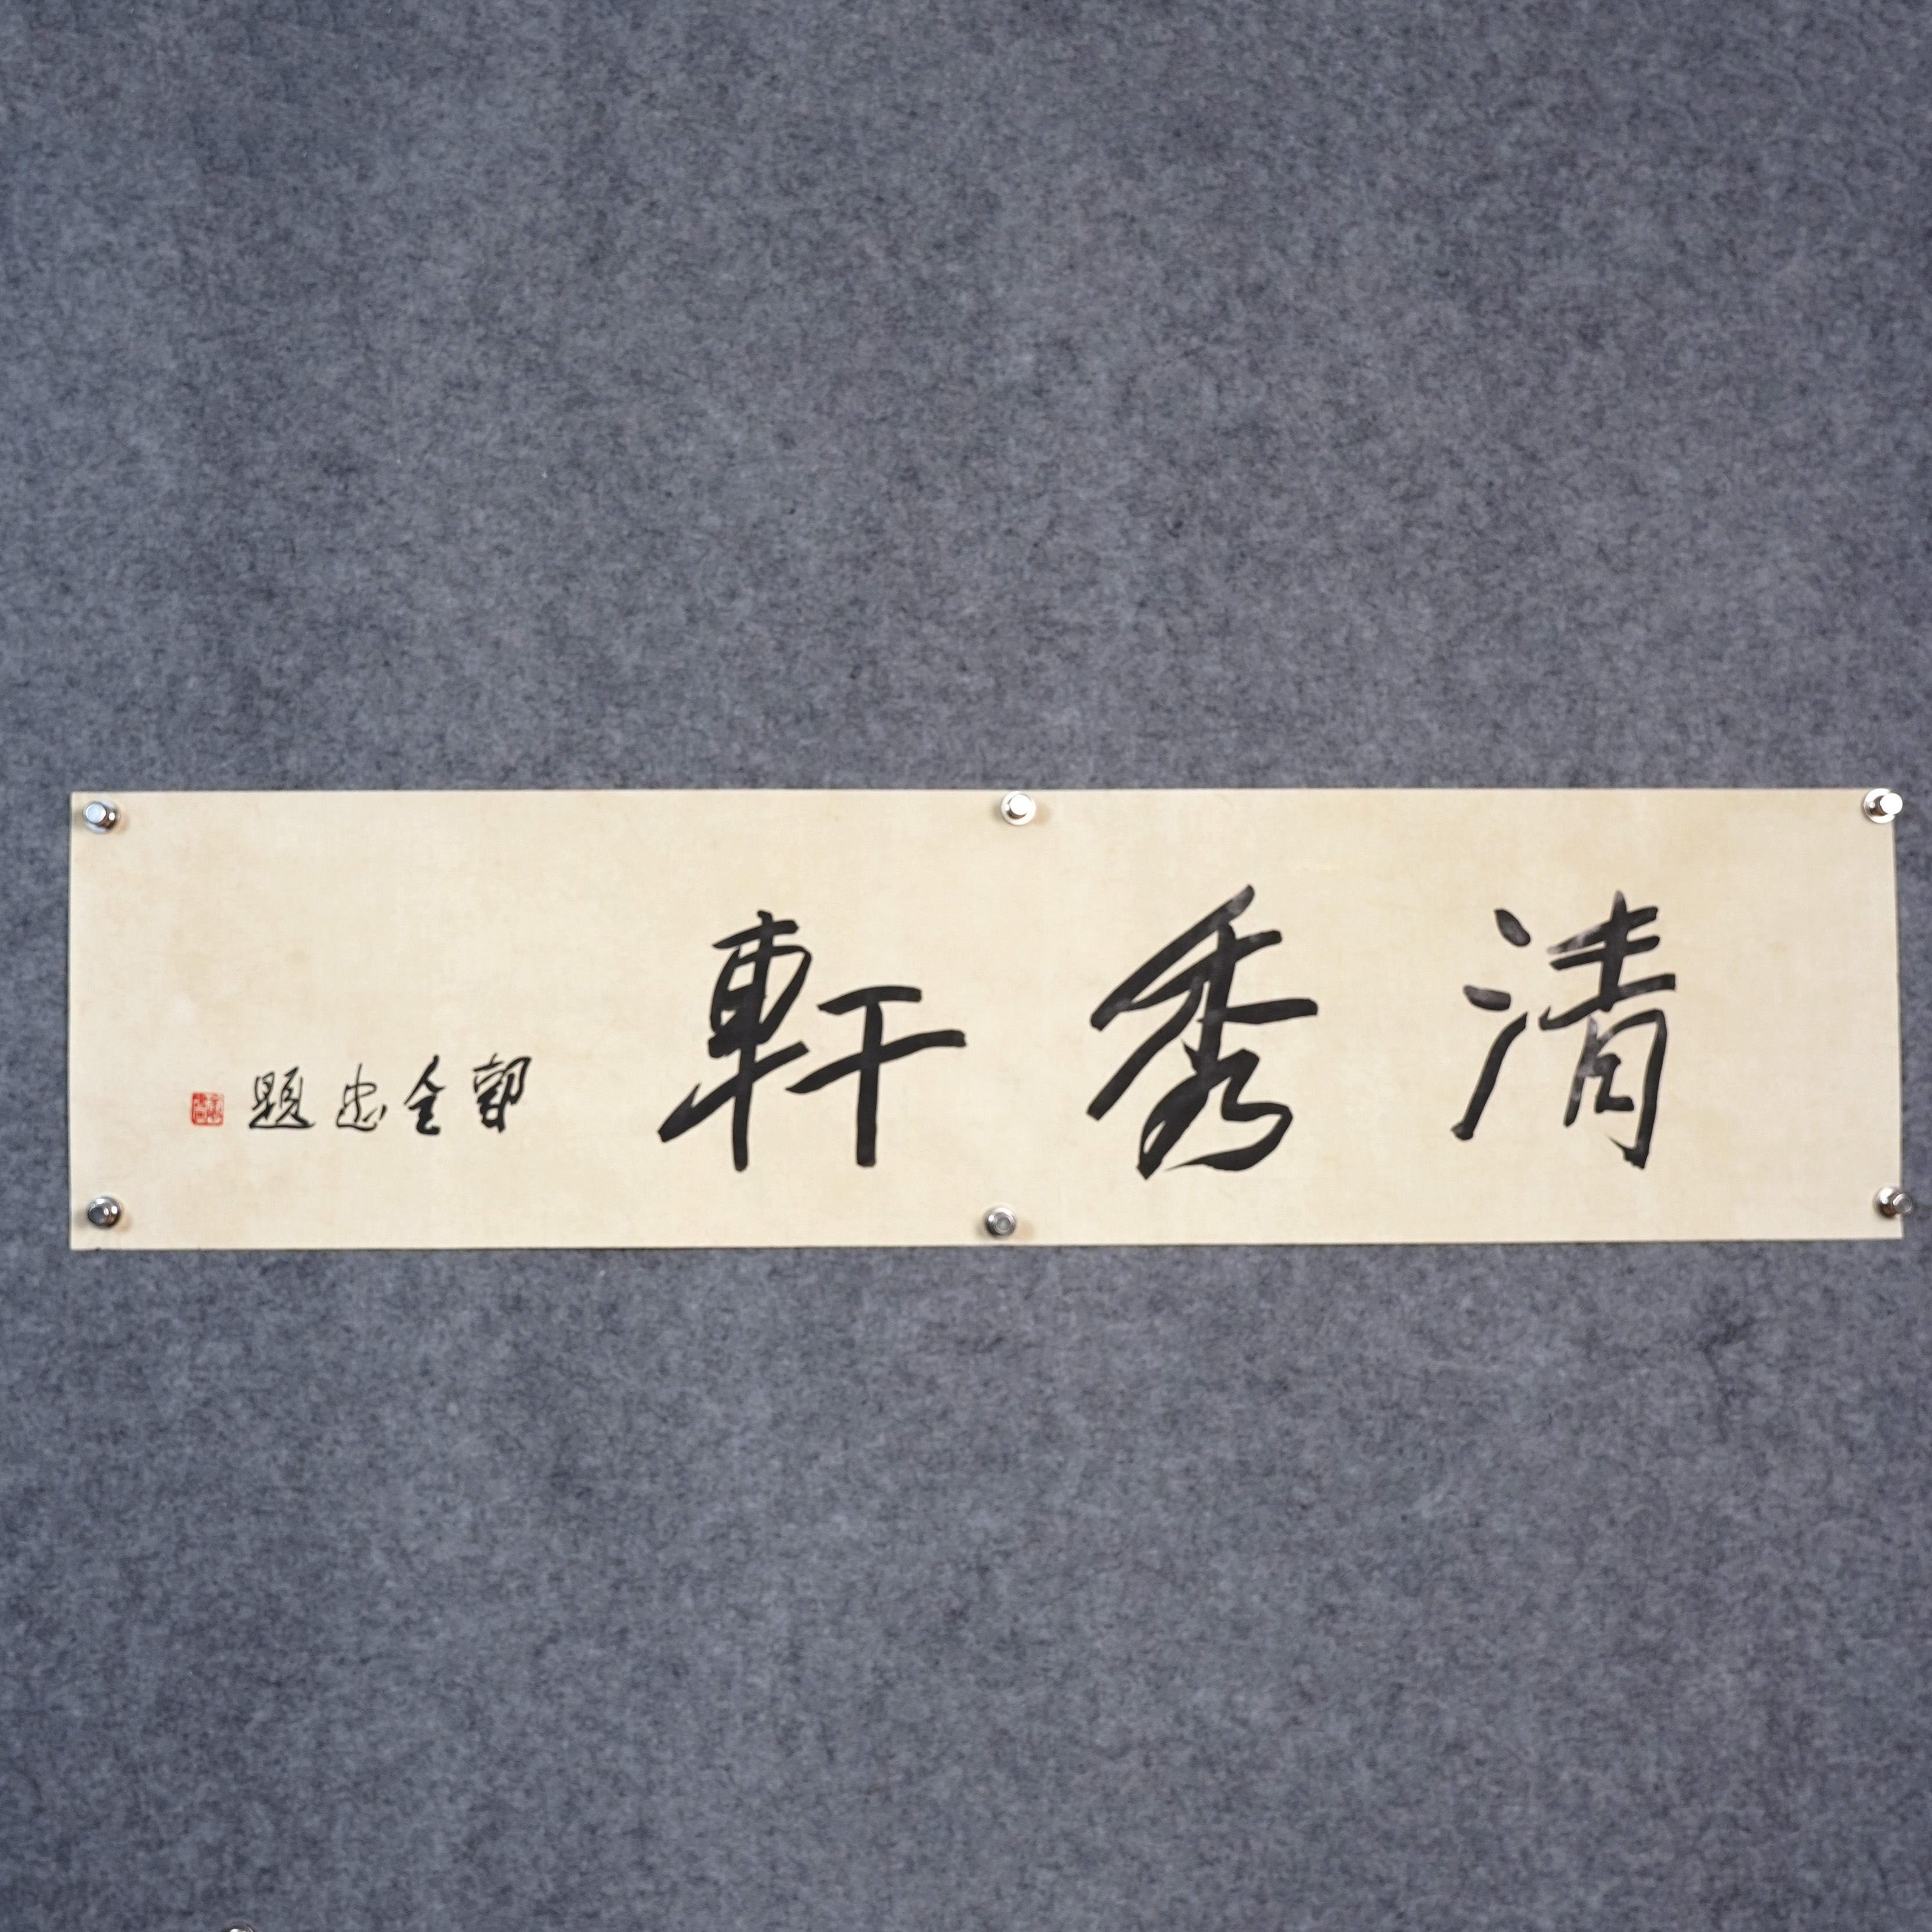 清秀軒
郭全忠題